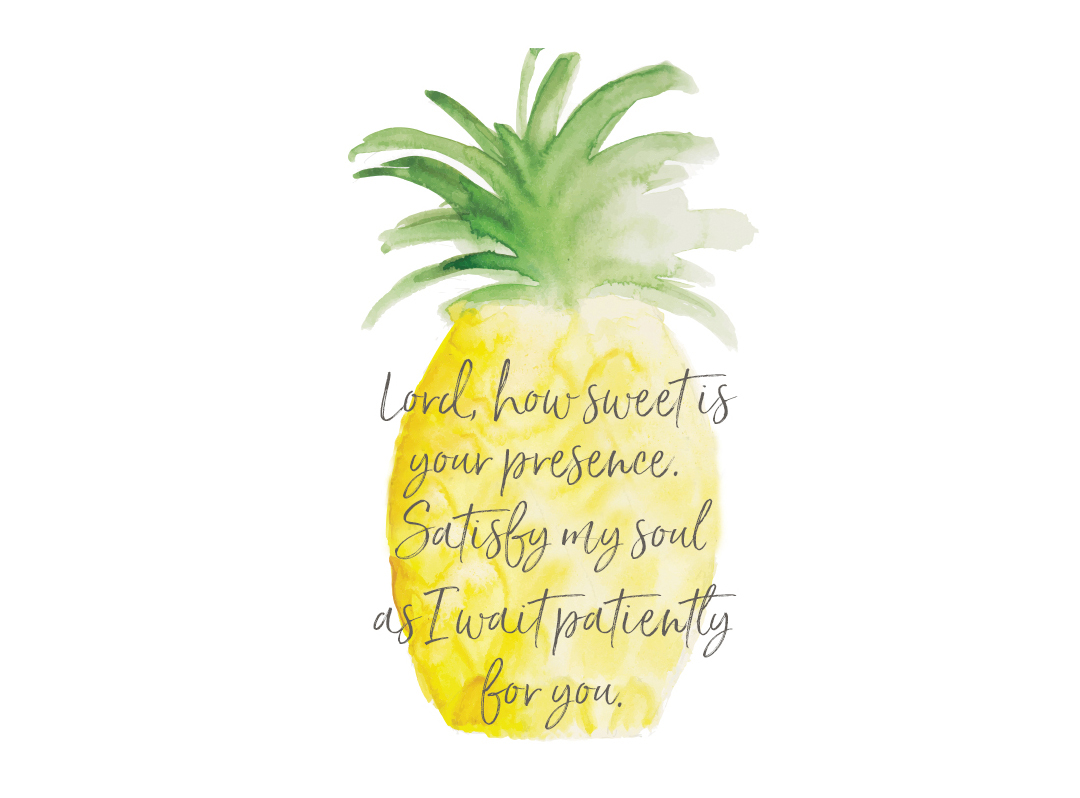 Lord, how sweet is
your presence.
Satisfy my soul
as I wait patiently
for you.